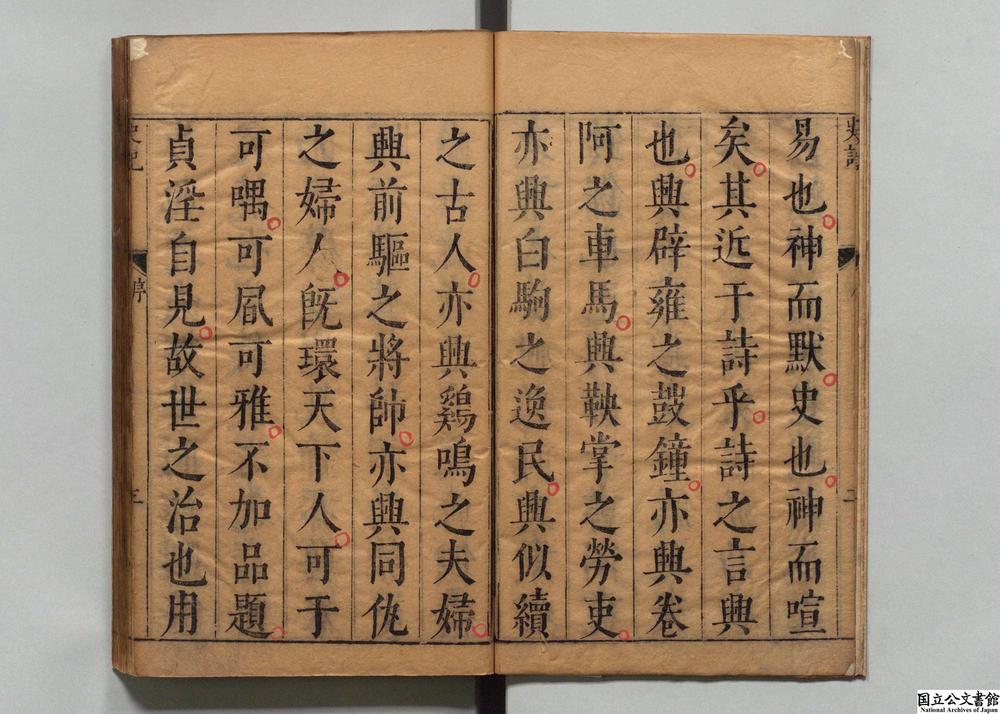 易也神而默史也神而喧
矣其近于詩乎詩之言興
也興辟雍之鼓鐘亦興卷
阿之車馬興鞅掌之勞吏
亦興白駒之逸民興似續
之古人亦興鷄鳴之夫婦
興前驅之將帥亦興同仇
之婦人既環天下人可于
可喁可風可雅不加品題
貞淫自見故世之治也用
序
国立公文書館
National Archives of Japan